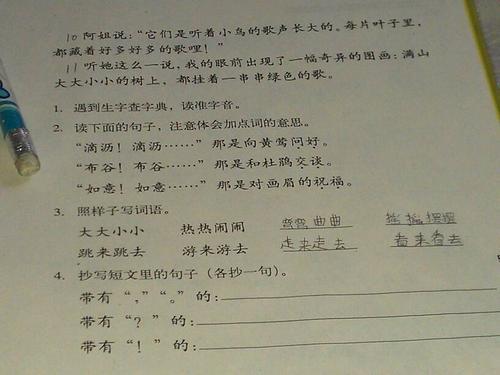 10 阿姐说：“它们是听着小鸟的歌声长大的。每片叶子里，
都藏着好多好多的歌哩！”
11 听她这么一说，我的眼前出现了一幅奇异的图画：满山
大大小小的树上，都挂着一串串绿色的歌。
1. 遇到生字查字典，读准字音。
2. 读下面的句子，注意体会加点词的意思。
“滴沥！滴沥……”那是向黄莺问好。
“布谷！布谷……”那是和杜鹃交谈。
“如意！如意……”那是对画眉的祝福。
3. 照样子写词语。
大大小小 热热闹闹 弯弯曲曲 摇摇摆摆
跳来跳去 游来游去 走来走去 看来看去
4. 抄写短文里的句子（各抄一句）。
带有“，”“。”的：
带有“？”的：
带有“！”的：